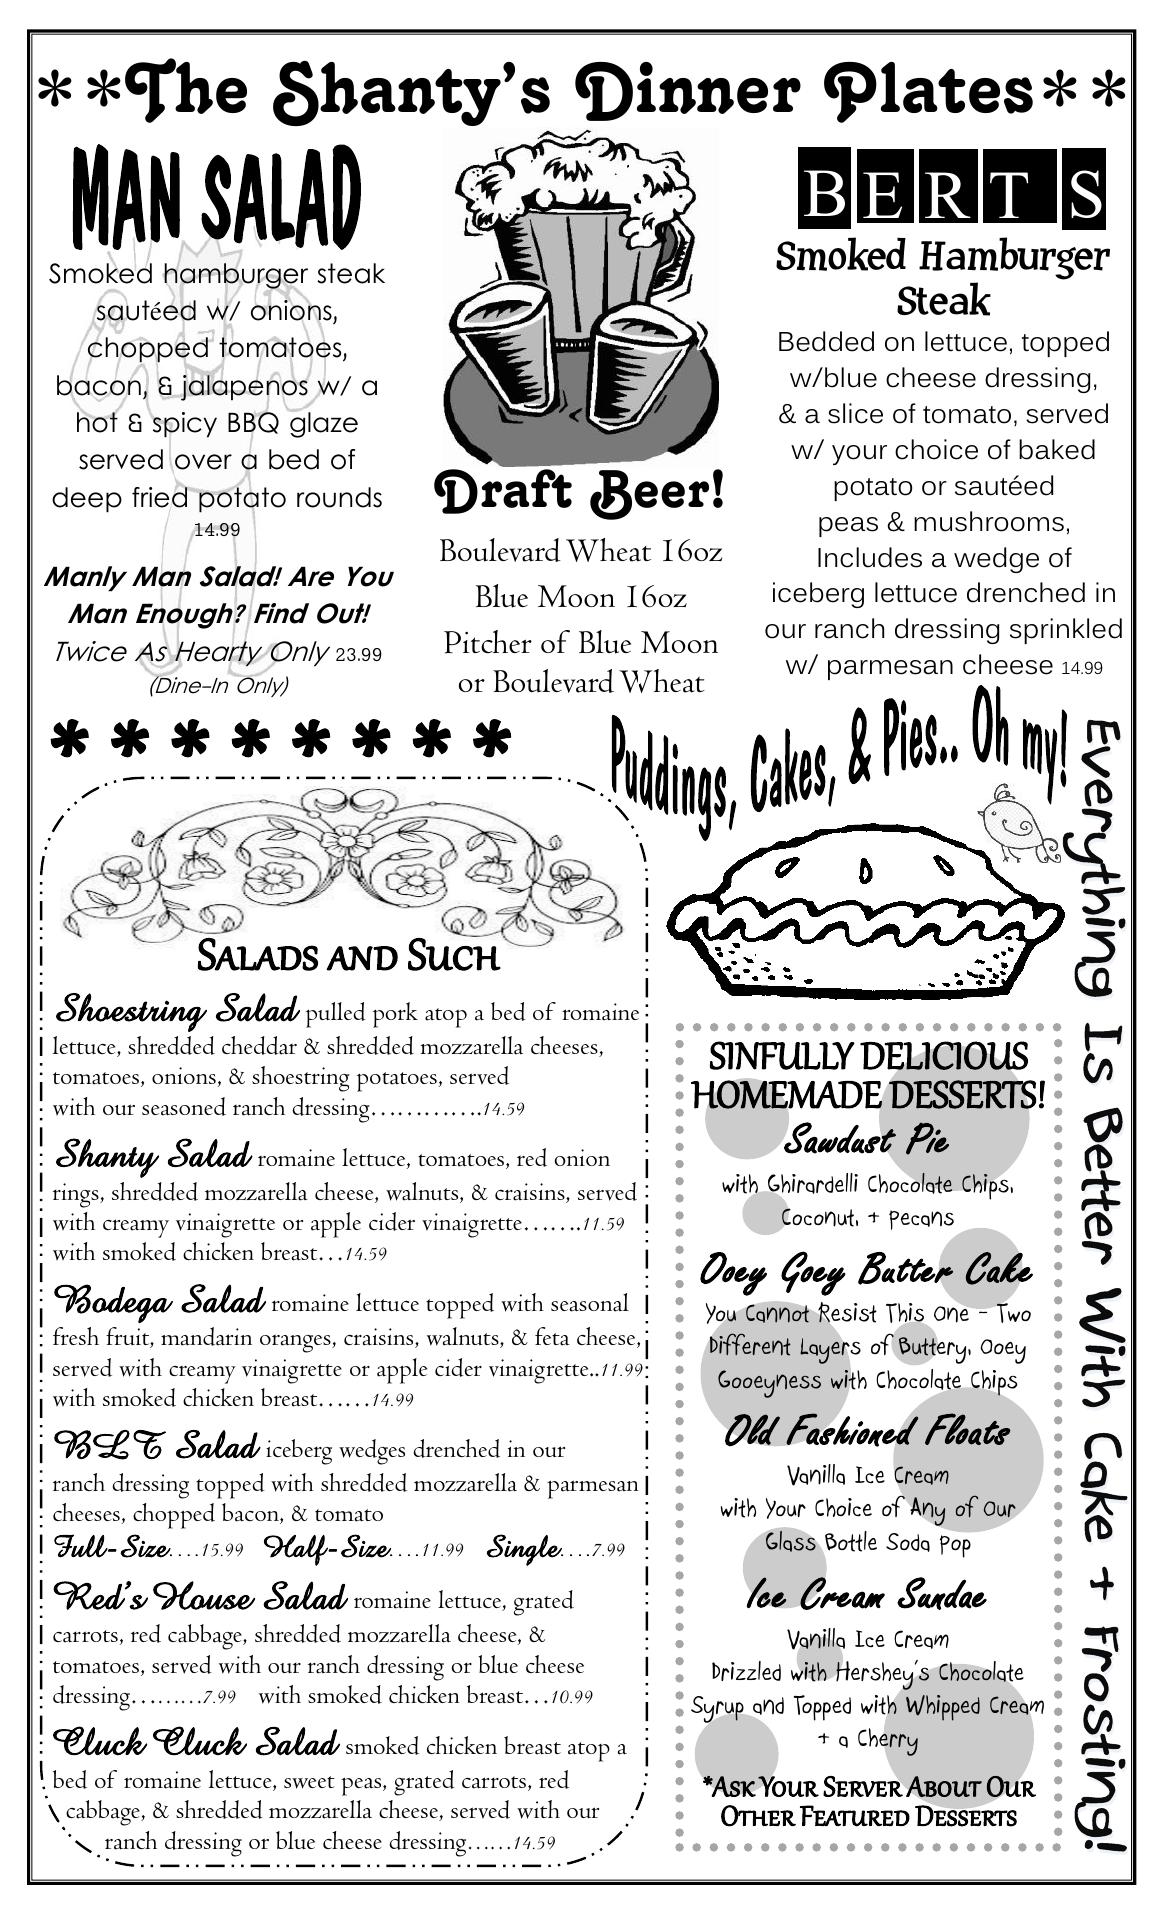 **The Shanty's Dinner Plates**
MAN SALAD
Smoked hamburger steak
sautéed w/ onions,
chopped tomatoes,
bacon, & jalapenos w/ a
hot & spicy BBQ glaze
served over a bed of
deep fried potato rounds
14.99
Manly Man Salad! Are You
Man Enough? Find Out!
Twice As Hearty Only 23.99
(Dine-In Only)
Draft Beer!
Boulevard Wheat 16oz
Blue Moon 16oz
Pitcher of Blue Moon
or Boulevard Wheat
BERT S
Smoked Hamburger
Steak
Bedded on lettuce, topped
w/blue cheese dressing,
& a slice of tomato, served
w/ your choice of baked
potato or sautéed
peas & mushrooms,
Includes a wedge of
iceberg lettuce drenched in
our ranch dressing sprinkled
w/ parmesan cheese 14.99
* * * * * * * *
SALADS AND SUCH
Shoestring Salad pulled pork atop a bed of romaine
lettuce, shredded cheddar & shredded mozzarella cheeses,
tomatoes, onions, & shoestring potatoes, served
with our seasoned ranch dressing………….14.59
Shanty Salad romaine lettuce, tomatoes, red onion
rings, shredded mozzarella cheese, walnuts, & craisins, served
with creamy vinaigrette or apple cider vinaigrette…….11.59
with smoked chicken breast…14.59
Bodega Salad romaine lettuce topped with seasonal
fresh fruit, mandarin oranges, craisins, walnuts, & feta cheese,
served with creamy vinaigrette or apple cider vinaigrette..11.99
with smoked chicken breast……14.99
BLT Salad iceberg wedges drenched in our
ranch dressing topped with shredded mozzarella & parmesan
cheeses, chopped bacon, & tomato
Full-Size….15.99 Half-Size….11.99 Single….7.99
Red's House Salad romaine lettuce, grated
carrots, red cabbage, shredded mozzarella cheese, &
tomatoes, served with our ranch dressing or blue cheese
dressing………7.99 with smoked chicken breast…10.99
Cluck Cluck Salad smoked chicken breast atop a
bed of romaine lettuce, sweet peas, grated carrots, red
cabbage, & shredded mozzarella cheese, served with our
ranch dressing or blue cheese dressing……14.59
Puddings, Cakes, & Pies.. Oh my!
SINFULLY DELICIOUS
HOMEMADE DESSERTS!
Sawdust Pie
with Ghirardelli Chocolate Chips,
Coconut, + Pecans
Ooey Gooey Butter Cake
You Cannot Resist This One - Two
Different Layers of Buttery, Ooey
Gooeyness with Chocolate Chips
Old Fashioned Floats
Vanilla Ice Cream
with Your Choice of Any of Our
Glass Bottle Soda Pop
Ice Cream Sundae
Vanilla Ice Cream
Drizzled with Hershey's Chocolate
Syrup and Topped with Whipped Cream
+ a Cherry
*ASK YOUR SERVER ABOUT OUR
OTHER FEATURED DESSERTS
Everything Is Better With Cake + Frosting!